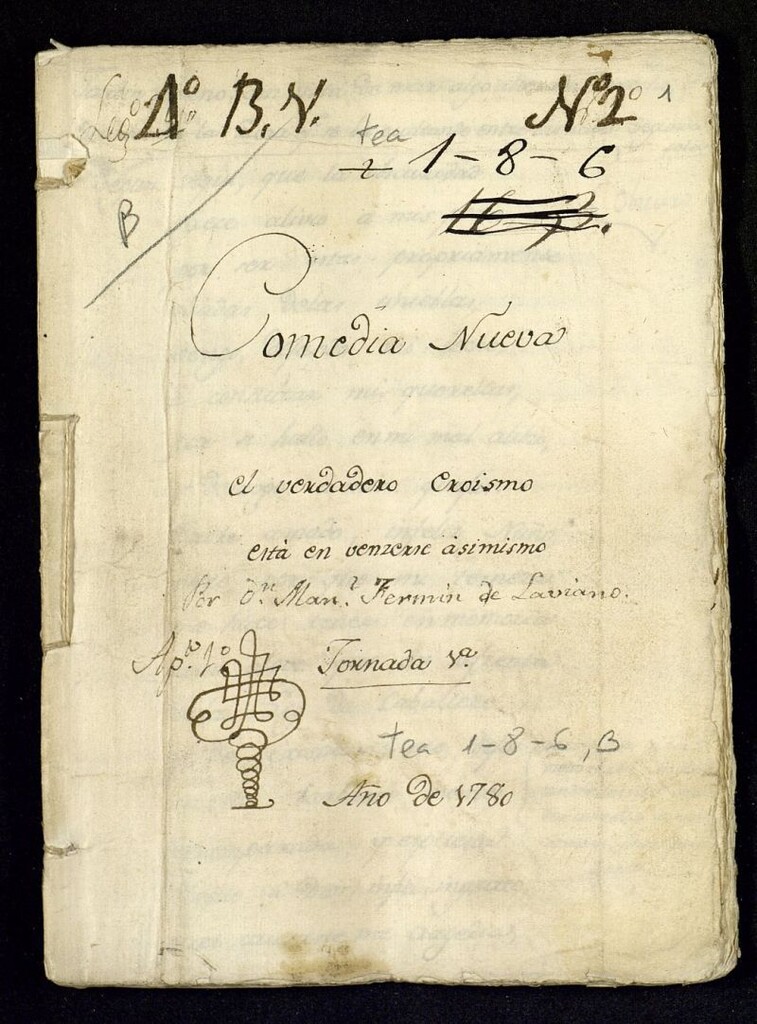 Leg.º 1º B. N. Nº 2º 1
tea
1-8-6
B
Comedia Nueva
el verdadero eroismo
està en venzerse àsimismo
Por Dn. Manl. Fermin de Laviano.
Ap.to 1º Jornada 1ª
tea 1-8-6, B
Año de 1780